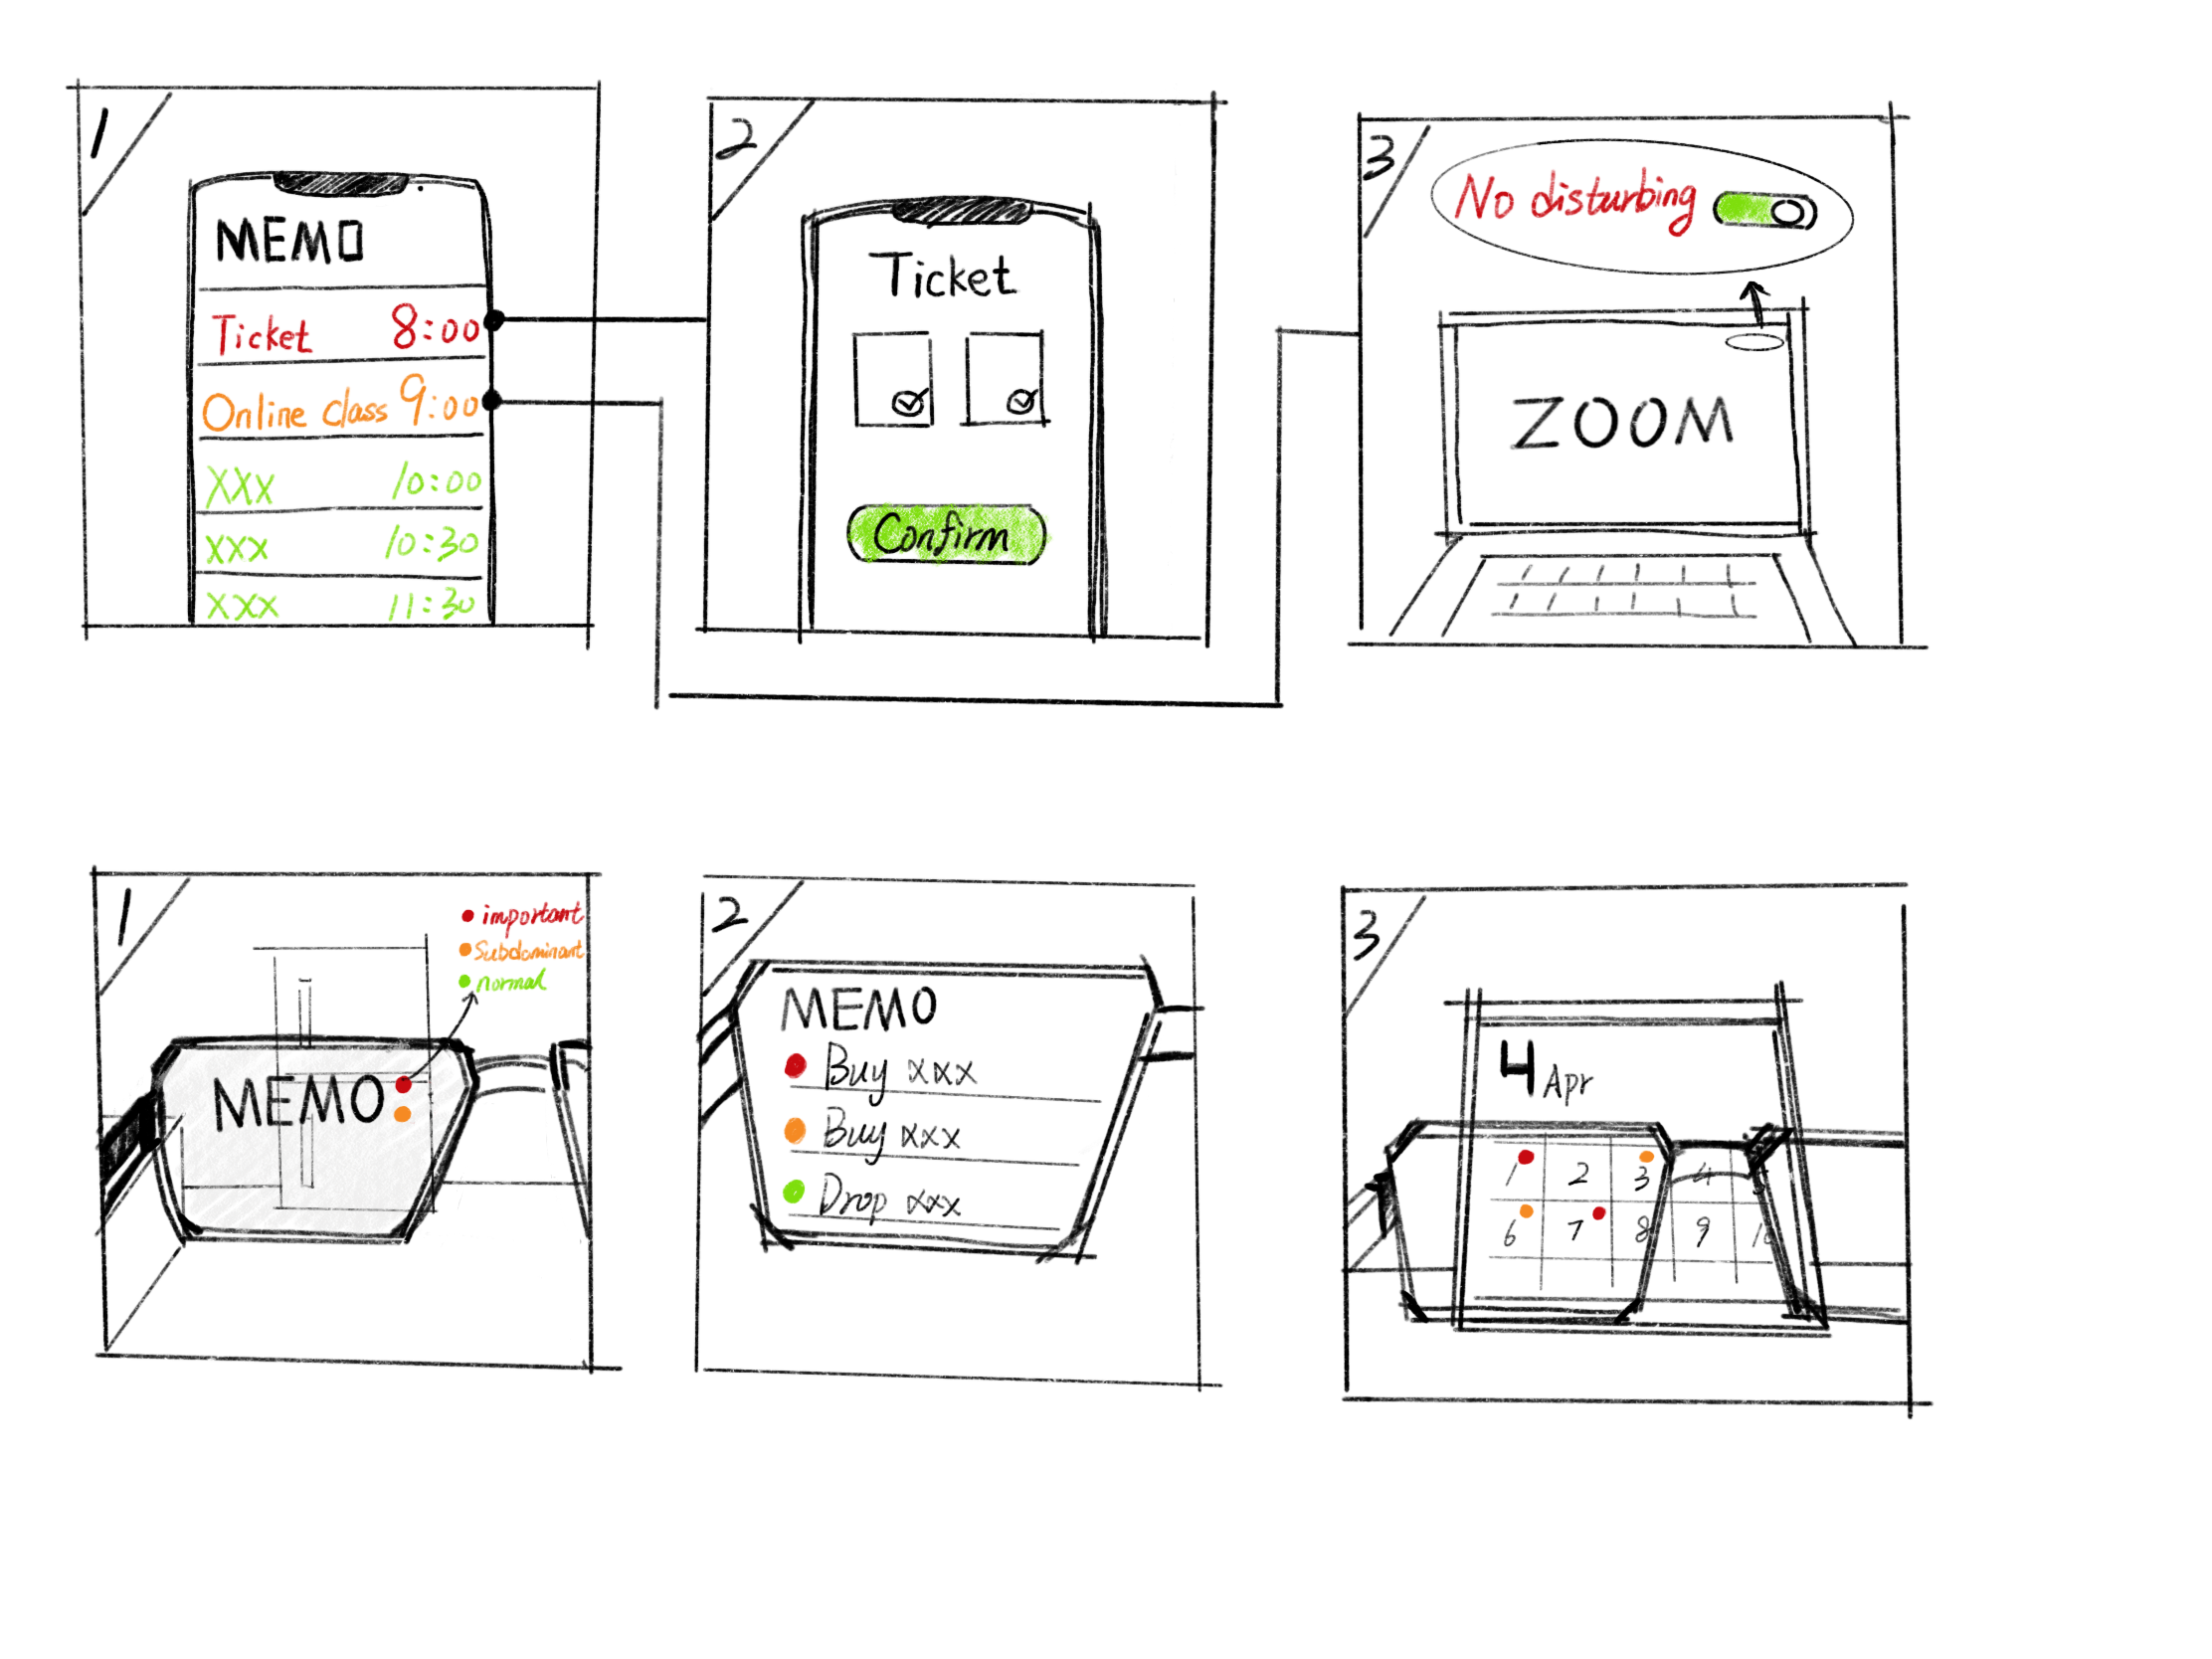 1
MEMO
Ticket 8:00
Online class 9:00
XXX 10:00
XXX 10:30
XXX 11:30
2
Ticket
Confirm
3
No disturbing
ZOOM
1
important
Subdominant
normal
MEMO
2
MEMO
Buy xxx
Buy xxx
Drop xxx
3
4 Apr
1 2 3 4 5
6 7 8 9 10